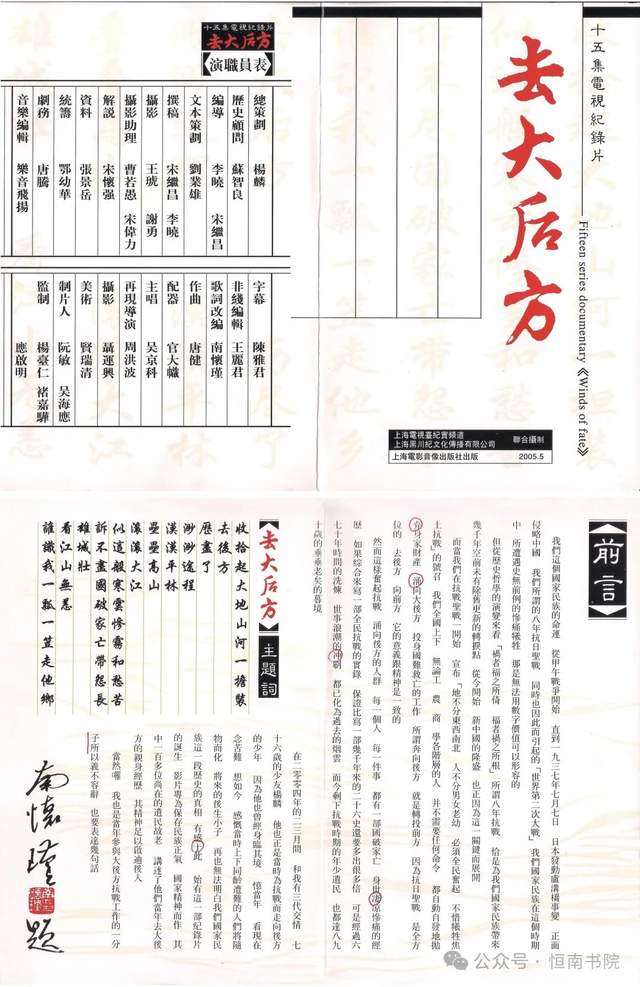 十五集電視紀錄片
去大后方
Fifteen series documentary《Winds of fate》
上海電視臺紀實頻道
上海黑川紀文化傳播有限公司
聯合攝制
上海電影音像出版社出版 2005.5
十五集電視紀錄片
去大后方
【演職員表】
總策劃 楊麟
歷史顧問 蘇智良
編導 李曉 宋繼昌
文本策劃 劉業雄
撰稿 宋繼昌 李曉
攝影 王琥 謝勇
攝影助理 曹若愚 宋偉力
解說 宋懷强
資料 張景岳
統籌 鄂幼華
劇務 唐騰
音樂編輯 樂音飛揚
字幕 陳雅君
非綫編輯 王麗君
歌詞改編 南懷瑾
作曲 唐健
配器 官大巘
主唱 吴京科
再現導演 周洪波
攝影 聶運興
美術 賢瑞清
制片人 阮敏 吴海應
監制 楊臺仁 褚嘉驊
應啟明
【前言】
我們這個國家民族的命運 從甲午戰爭開始 直到一九三七年七月七日 日本發動盧溝橋事變 正面
侵略中國 我們所謂的八年抗日戰爭 同時也因此而引起的「世界第二次大戰」 我們國家民族在這個時期
中 所遭遇史無前例的慘痛犧牲 那是無法用數字價值可以形容的
但從歷史哲學的演變來看「禍者福之所倚 福者禍之所根」 所謂八年抗戰 恰是為我們國家民族帶來
幾千年空前未有除舊更新的轉捩點 從今開始 新中國的隆盛 也正因為這一關鍵而展開
而當我們在抗戰聖戰一開始 宣布「地不分東西南北 人不分男女老幼 必須全民奮起 不惜犧牲焦
土抗戰」的號召 我們全國上下 無論工 農 商 學各階層的人 并不需要任何命令 都自動自發地拋
弃身家財產 涌向大後方 投身國難救亡的工作 所謂奔向後方 就是轉投前方 因為抗日聖戰 是全方
位的 去後方 向前方 它的意義跟精神是一致的
然而這樣奮起抗戰 涌向後方的人群 每一個人 每一件事 都有一部國破家亡 身世凄凉慘痛的經
歷 如果綜合來寫一部全民抗戰的實錄 保證比寫一部幾千年來的二十六史還要多出很多倍 可是經過六
七十年時間的洗煉 世事浪潮的沖刷 都已化為過去的烟雲 而今剩下抗戰時期的年少遺民 也都達八九
十歲的垂垂老矣的暮境
【去大后方】主題詞
收拾起大地山河一擔裝
去後方
歷盡了
渺渺途程
漠漠平林
壘壘高山
滾滾大江
似這般寒雲慘霧和愁苦
訴不盡國破家亡帶怨長
雄城壯
看江山無恙
誰識我一瓢一笠走他鄉
在二零零四年的二三月間 和我有三代交情 七
十六歲的少友楊麟 他也正是當時為抗戰而走向後方
的少年 因為他也曾經身臨其境 憶當年 看現在
念苦難 想如今 感慨當時上下同齡遭難的人們將隨
物而化 將來的後生小子 再也無法明白我們國家民
族這一段歷史的真相 有感于此 始有這一部紀錄片
的誕生 影片專為保存民族正氣 國家精神而作 其
中一百多位尚在的遺民故老 講述了他們當年去大後
方的親身經歷 其精神足以啟迪後人
當然囉 我也是當年參與大後方抗戰工作的一分
子所以義不容辭 也要表達幾句話
南懷瑾 題
公众号·恒南书院